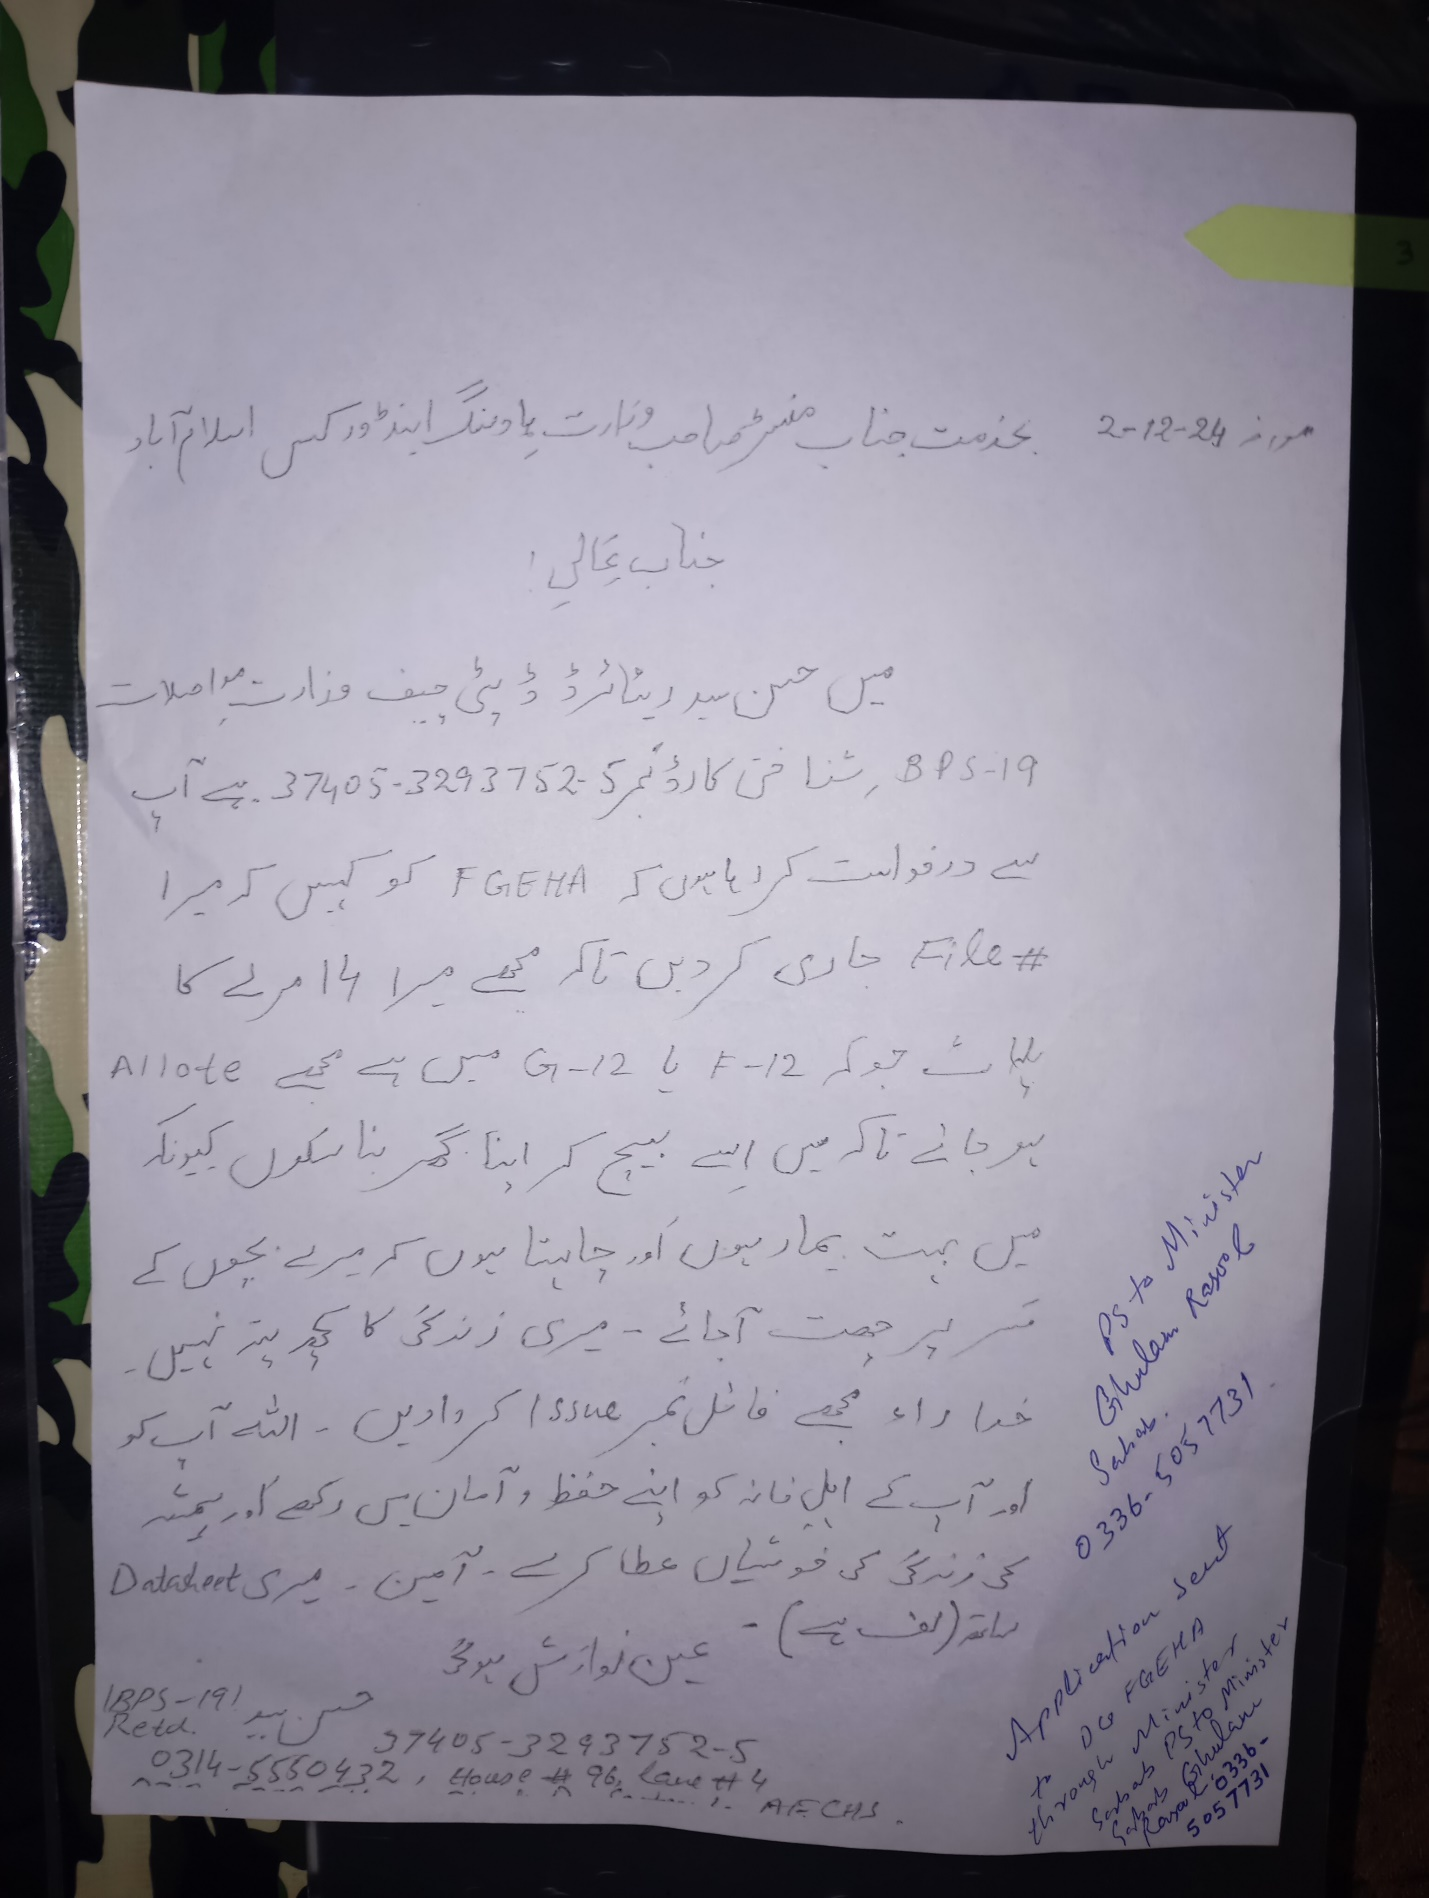 3
مورخہ 2-12-24 بخدمت جناب منسٹر صاحب وزارت ہاوسنگ اینڈ ورکس اسلام آباد
جناب عالی!
میں حسن سید ریٹائرڈ ڈپٹی چیف وزارت مواصلات
BPS-19، شناختی کارڈ نمبر 37405-3293752-5 ہے آپ
سے درخواست کر رہا ہوں کہ FGEHA کو کہیں کہ میرا
File # جاری کر دیں تاکہ مجھے میرا 14 مرلے کا
پلاٹ جو کہ F-12 یا G-12 میں ہے مجھے Allote
ہو جائے تاکہ میں اِسے بیچ کر اپنا گھر بنا سکوں کیونکہ
میں بہت بیمار ہوں اور چاہتا ہوں کہ میرے بچوں کے
سر پر چھت آجائے - میری زندگی کا کچھ پتہ نہیں -
خدا راء مجھے فائل نمبر Issue کروا دیں - اللہ آپ کو
اور آپ کے اہل خانہ کو اپنے حفظ و آمان میں رکھے اور ہمیشہ
کی زندگی کی خوشیاں عطا کرے - آمین - میری Datasheet
ساتھ (لف ہے) -
عین نوازش ہوگی
حسن سید (BPS-19)
Retd.
37405-3293752-5
0314-5550432, House # 96, Lane # 4
AECHS.
PS to Minister
Ghulam Rasool
Sahab.
0336-5057731
Application sent
to DG FGEHA
through Minister
Sahab PS to Minister
Sahab Ghulam
Rasool 0336-
5057731